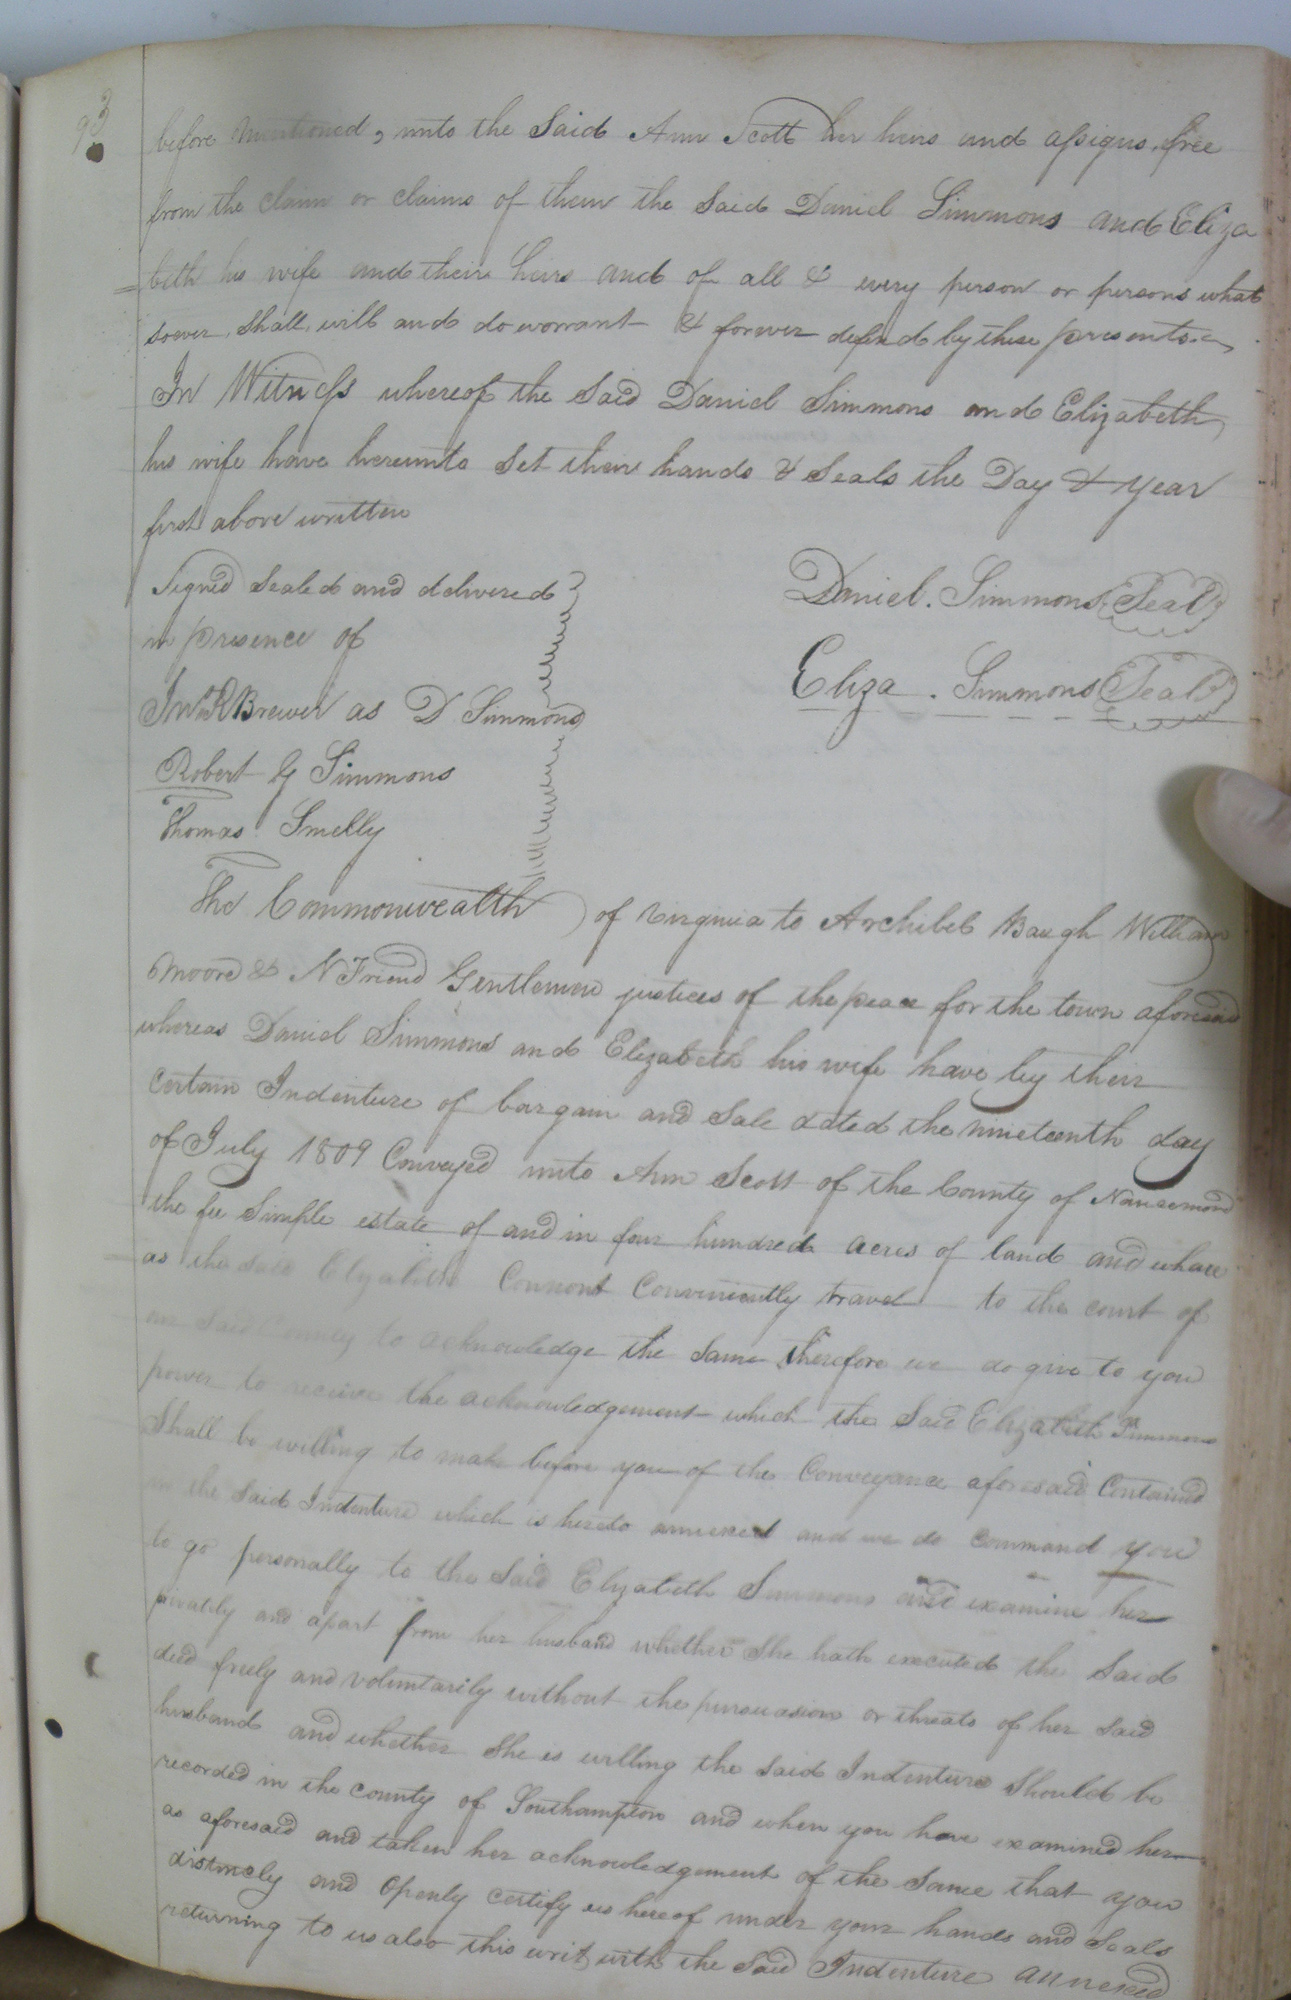 93
before mentioned, unto the Said Ann Scott her heirs and assigns, free
from the claim or claims of them the said Daniel Simmons and Eliza
beth his wife and their heirs and of all & every person or persons what
soever, Shall, will and do warrant & forever defend by these presents.
In Witness whereof the Said Daniel Simmons and Elizabeth
his wife have hereunto Set their hands & Seals the Day & year
first above written
Signed Sealed and delivered
in presence of
Jno R Brewer as D Simmons
Robert G Simmons
Thomas Smelly
Daniel. Simmons Seal
Eliza. Simmons Seal
The Commonwealth of Virginia to Archibel Baugh William
Moore & N Friend Gentlemen justices of the peace for the town aforesaid
whereas Daniel Simmons and Elizabeth his wife have by their
Certain Indenture of bargain and Sale dated the nineteenth day
of July 1809 Conveyed unto Ann Scott of the County of Nansemond
the fee Simple estate of and in four hundred acres of land and where
as the said Elizabeth Cannont Conveniently travel to the court of
our Said County to acknowledge the same therefore we do give to you
power to receive the acknowledgement which the Said Elizabeth Simmons
Shall be willing to make before you of the Conveyance aforesaid Contained
in the Said Indenture which is hereto annexed and we do command you
to go personally to the Said Elizabeth Simmons and examine her
privately and apart from her husband whether She hath executed the Said
deed freely and voluntarily without the pursuasion or threats of her said
husband and whether She is willing the said Indenture Should be
recorded in the County of Southampton and when you have examined her
as aforesaid and taken her acknowledgement of the Same that you
distincly and Openly certify us hereof under your hands and Seals
returning to us also this writ, with the Said Indenture annexed